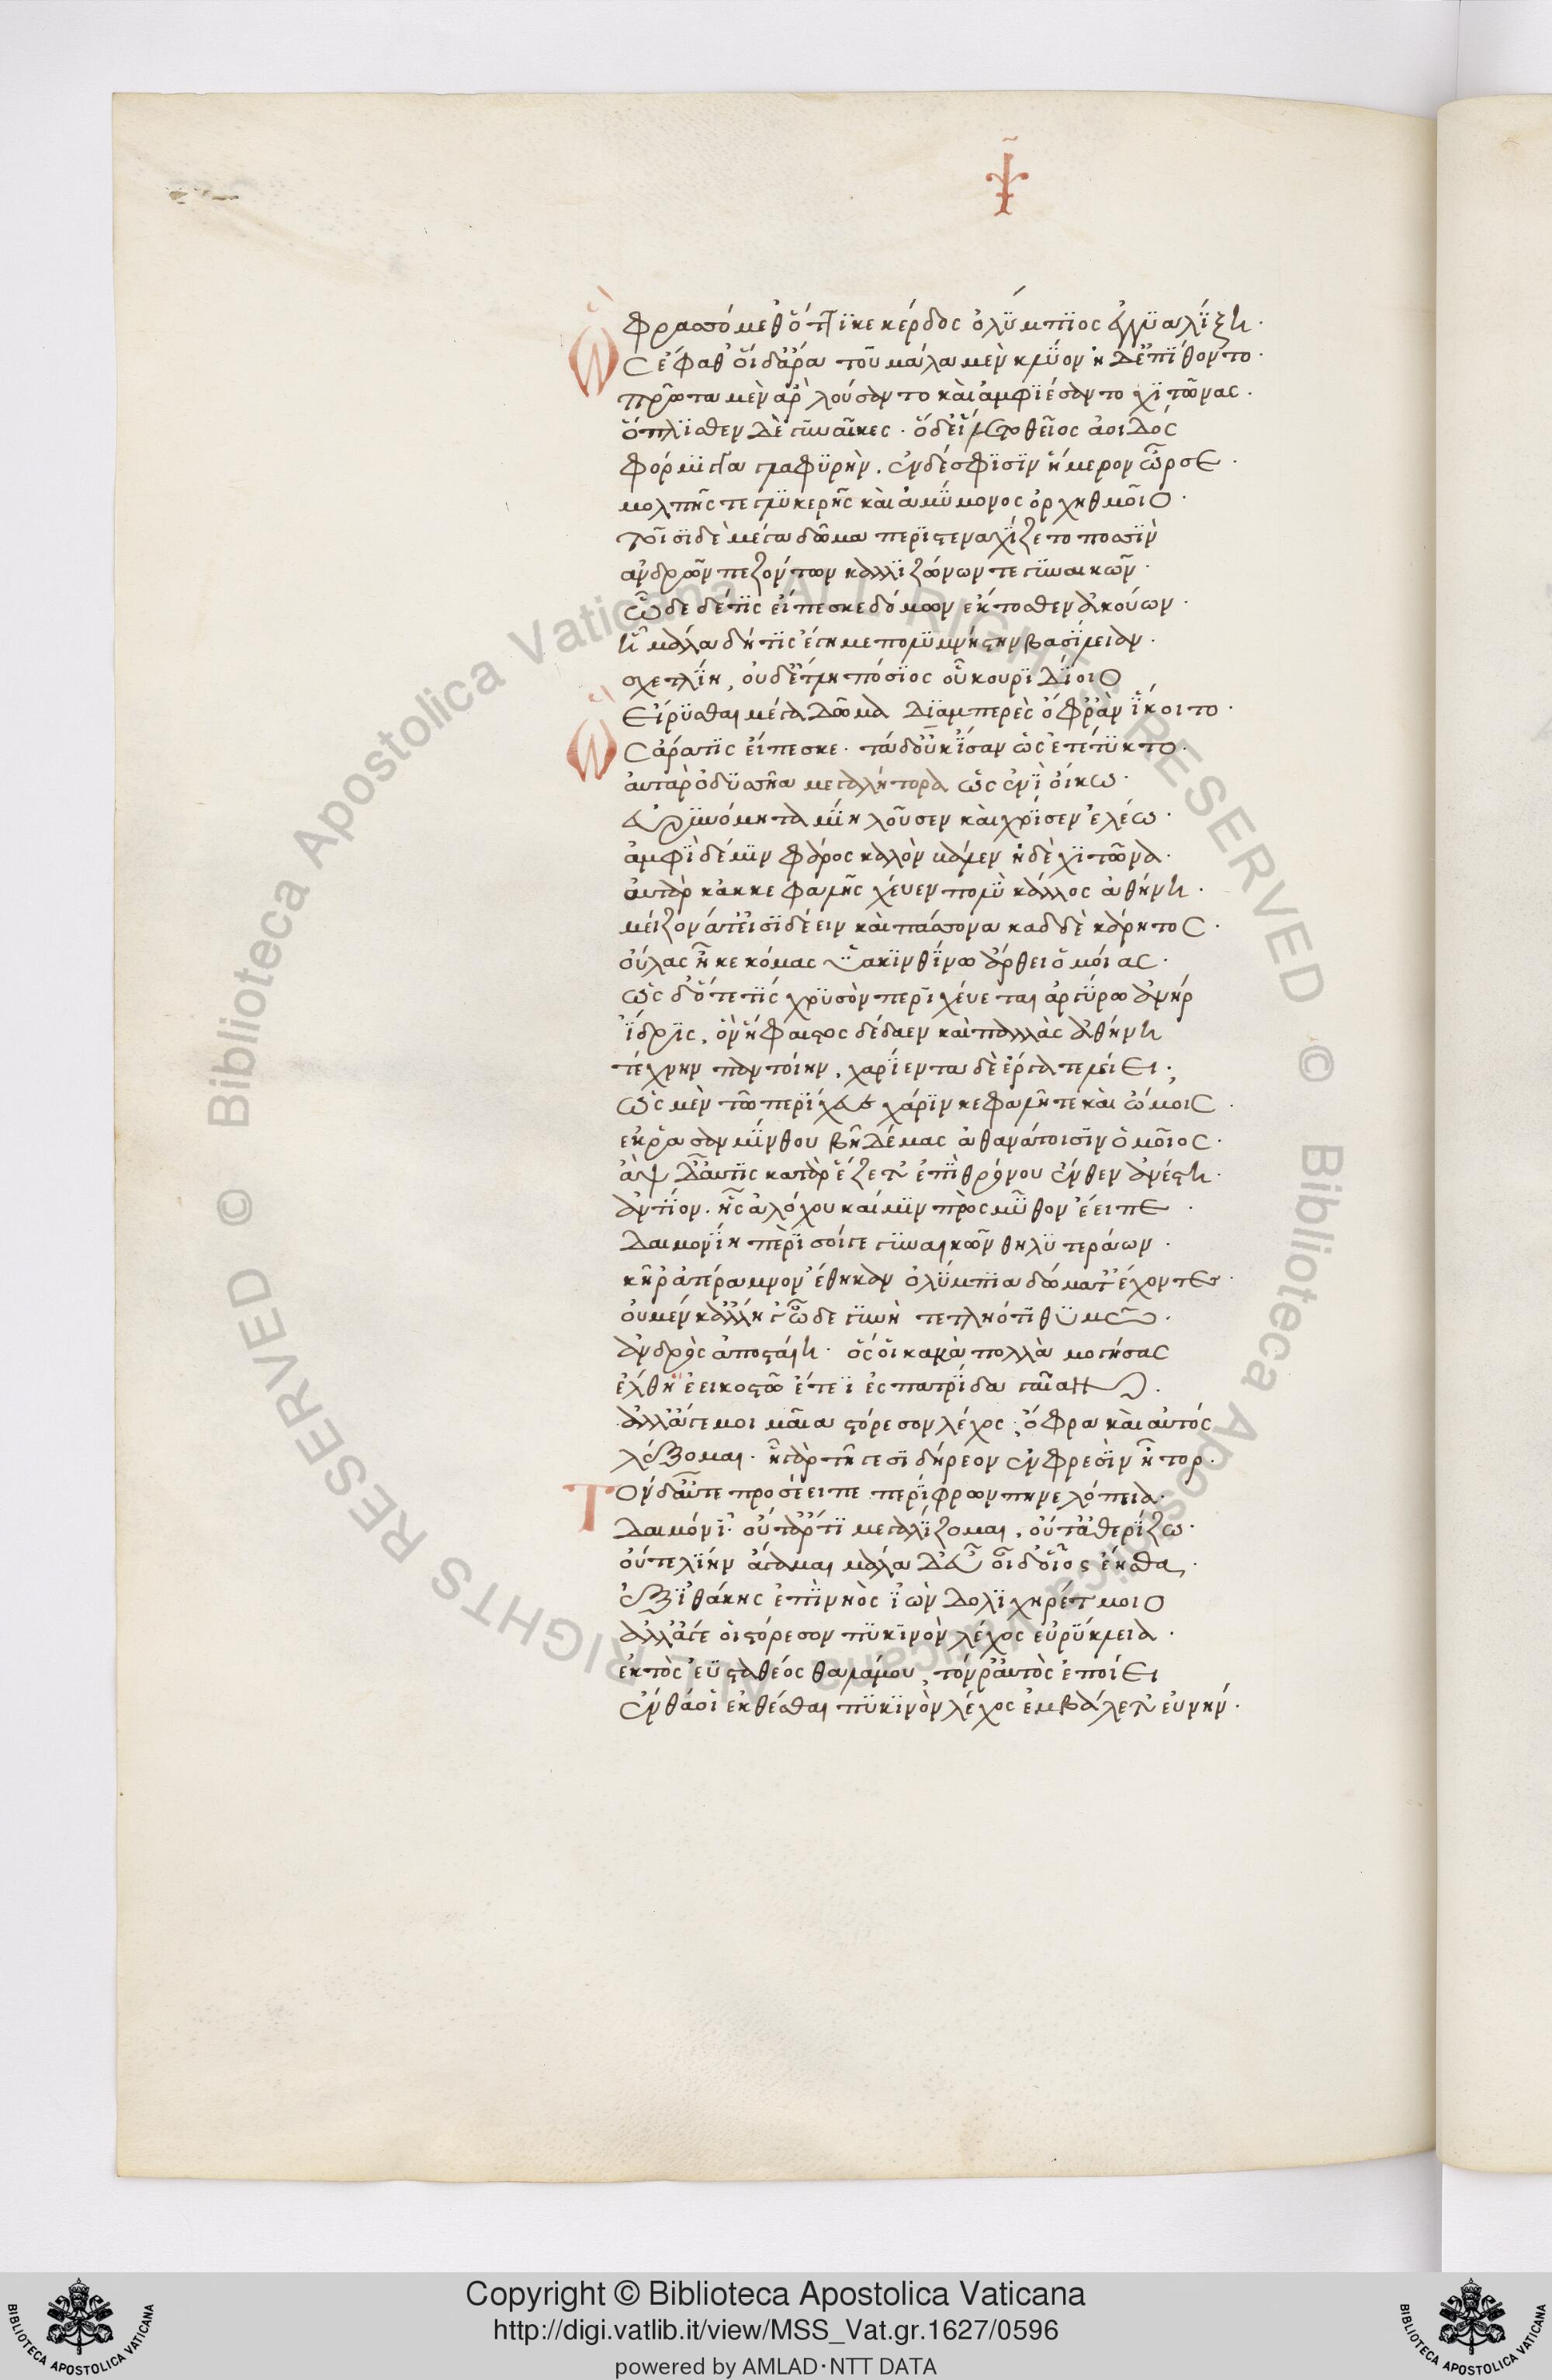 φρασσόμεθ' ὅττι κε κέρδος ὀλύμπιος ἐγγυαλίξη·
Ὣς ἔφαθ' οἱ δ' ἄρα τοῦ μάλα μὲν κλύον ἠδ' ἐπίθοντο·
πρῶτα μὲν ἂρ λούσαντο καὶ ἀμφιέσαντο χιτῶνας·
ὅπλισθεν δὲ γυναῖκες· ὁ δ' εἵλετο θεῖος ἀοιδός
φόρμιγγα γλαφυρὴν, ἐν δέ σφισιν ἥμερον ὦρσε·
μολπῆς τε γλυκερῆς καὶ ἀμύμονος ὀρχηθμοῖο·
τοῖσι δὲ μέγα δῶμα περιστεναχίζετο ποσσὶν
ἀνδρῶν πεζόντων καλλιζώνων τε γυναικῶν·
ὧδε δέ τις εἴπεσκε δόμων ἔκτοσθεν ἀκούων·
ἦ μάλα δή τις ἔγημε πολυμνήστην βασίλειαν·
σχετλίη, οὐδ' ἔτλη πόσιος οὗ κουριδίοιο
εἴρυσθαι μέγα δῶμα διαμπερὲς ὄφρ' ἂν ἵκοιτο·
Ὣς ἄρα τις εἴπεσκε· τὰ δ' οὐκ ἴσαν ὡς ἐτέτυκτο·
αὐτὰρ ὀδυσσῆα μεγαλήτορα ὧς ἐνὶ οἴκω·
εὐρυνόμη ταμίη λοῦσεν καὶ χρίσεν ἐλέω·
ἀμφὶ δέ μιν φᾶρος καλὸν βάλεν ἠδὲ χιτῶνα·
αὐτὰρ κὰκ κεφαλῆς χεύεν πολὺ κάλλος ἀθήνη·
μείζονά τ' εἰσιδέειν καὶ πάσσονα καδδὲ κάρητος·
οὔλας ἧκε κόμας ὑακινθίνω ἄνθει ὁμοίας·
ὡς δ' ὅτε τίς χρυσὸν περιχέυεται ἀργύρω ἀνήρ
ἴδρις, ὃν ἥφαιστος δέδαεν καὶ παλλὰς ἀθήνη
τέχνην παντοίην, χαρίεντα δὲ ἔργα τελείει·
ὡς μὲν τῶ περίχευε χάριν κεφαλῆ τε καὶ ὤμοις·
ἐκ ῥ' ἀσαμίνθου βῆ δέμας ἀθανάτοισιν ὁμοῖος·
ἂψ δ' αὖτις κατὰρ ἕζετ' ἐπὶ θρόνου ἔνθεν ἀνέστη·
ἀντίον· ἧς ἀλόχου καί μιν πρὸς μῦθον ἔειπε·
δαιμονίη πὲρι σοίγε γυναικῶν θηλυτεράων·
κῆρ ἀτέραμνον ἔθηκαν ὀλύμπια δώματ' ἔχοντες·
οὐ μέν κ' ἄλλη γ' ὧδε γυνὴ τετληότι θυμῶ·
ἀνδρὸς ἀποσταίη· ὅς οἱ κακὰ πολλὰ μογήσας
ἔλθη ἐεικοστῶ ἔτεϊ ἐς πατρίδα γαῖαν·
ἀλλ' ἄγε μοι μαῖα στόρεσον λέχος, ὄφρα καὶ αὐτός
λέξομαι· ἦ γὰρ τῆγε σιδήρεον ἐν φρεσὶν ἦτορ·
Τὸν δ' αὖτε προσέειπε περίφρων πηνελόπεια·
δαιμόνι'· οὔτ' ἄρ τι μεγαλίζομαι, οὔτ' ἀθερίζω·
οὔτε λίην ἄγαμαι μάλα δ' εὖ οἶδ' οἷος ἔησθα·
ἐξ ἰθάκης ἐπὶ νηὸς ἰὼν δολιχηρέτμοιο
ἀλλ' ἄγε οἱ στόρεσον πυκινὸν λέχος εὐρύκλεια·
ἐκτὸς ἐϋσταθέος θαλάμου, τόν ῥ' αὐτὸς ἐποίει
ἔνθά οἱ ἐκθέσθαι πυκινὸν λέχος ἐμβάλετ' εὐνήν·
Copyright © Biblioteca Apostolica Vaticana
http://digi.vatlib.it/view/MSS_Vat.gr.1627/0596
powered by AMLAD·NTT DATA